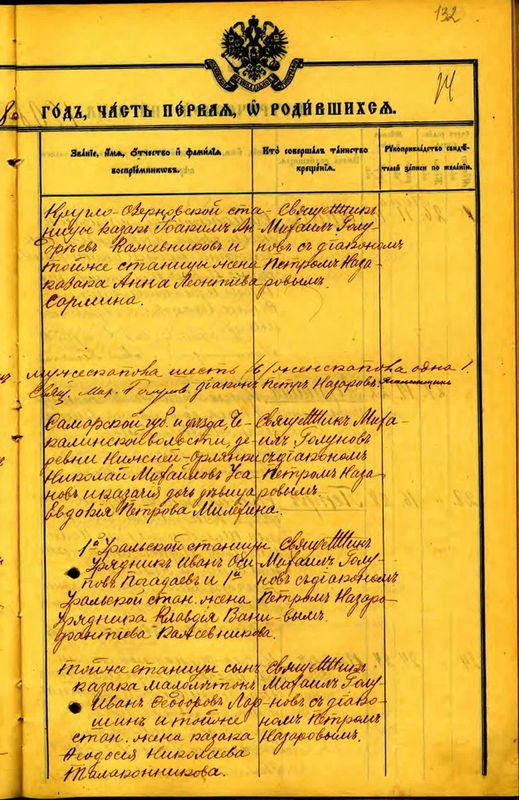 132
14
ГОДЪ, ЧАСТЬ ПЕРВАЯ, Ѡ РОДИВШИХСЯ.
Званіе, имя, отчество и фамилія воспріемниковъ.
Кто совершалъ таинство крещенія.
Рукоприкладство свидѣтелей записи по желанію.
Кругло-Озерновской ста-
ницы казакъ Іоакимъ Ан
дреевъ Кажевниковъ и
тойже станицы жена
казака Анна Леонтіева
Сармина.
Священникъ
Михаилъ Голу-
новъ съ діакономъ
Петромъ Наза-
ровымъ.
мужескапола шесть /6/ женскапола одна 1.
Свящ. Мих. Голуновъ діаконъ Петръ Назаровъ
Самарской губ. и уѣзда, Че-
калинской волости, де-
ревни Нижней-Орлянки
Николай Михайловъ Уса-
новъ и казачья дочь дѣвица
Евдокія Петрова Милехина.
Священникъ Миха-
илъ Голуновъ
съ діакономъ
Петромъ Наза-
ровымъ.
1й Уральской станицы
Урядникъ Иванъ Оси
повъ Погадаевъ и 1й
Уральской стан. жена
Урядника Клавдія Вани-
фантіева Кажевникова.
Священникъ
Михаилъ Голу-
новъ съ діакономъ
Петромъ Назаро-
вымъ.
тойже станицы сынъ
казака малолѣтокъ
Иванъ Ѳеодоровъ Лар-
шинъ и тойже
стан. жена казака
Ѳеодосія Николаева
Толаконникова.
Священникъ
Михаилъ Голу-
новъ съ діако-
номъ Петромъ
Назаровымъ.